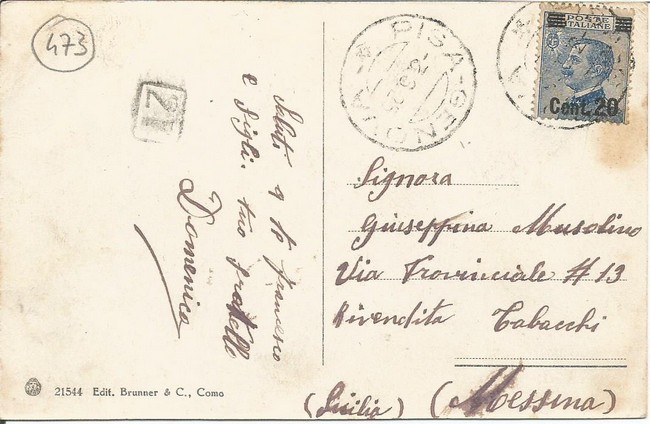 473
21
Saluti a te Francesco
e figli. tuo fratello
Domenico
PISA-GENOVA
POSTE
ITALIANE
Cent. 20
Signora
Giuseppina Musolino
Via Provinciale # 13
Rivendita Tabacchi
(Sicilia) (Messina)
21544 Edit. Brunner & C., Como